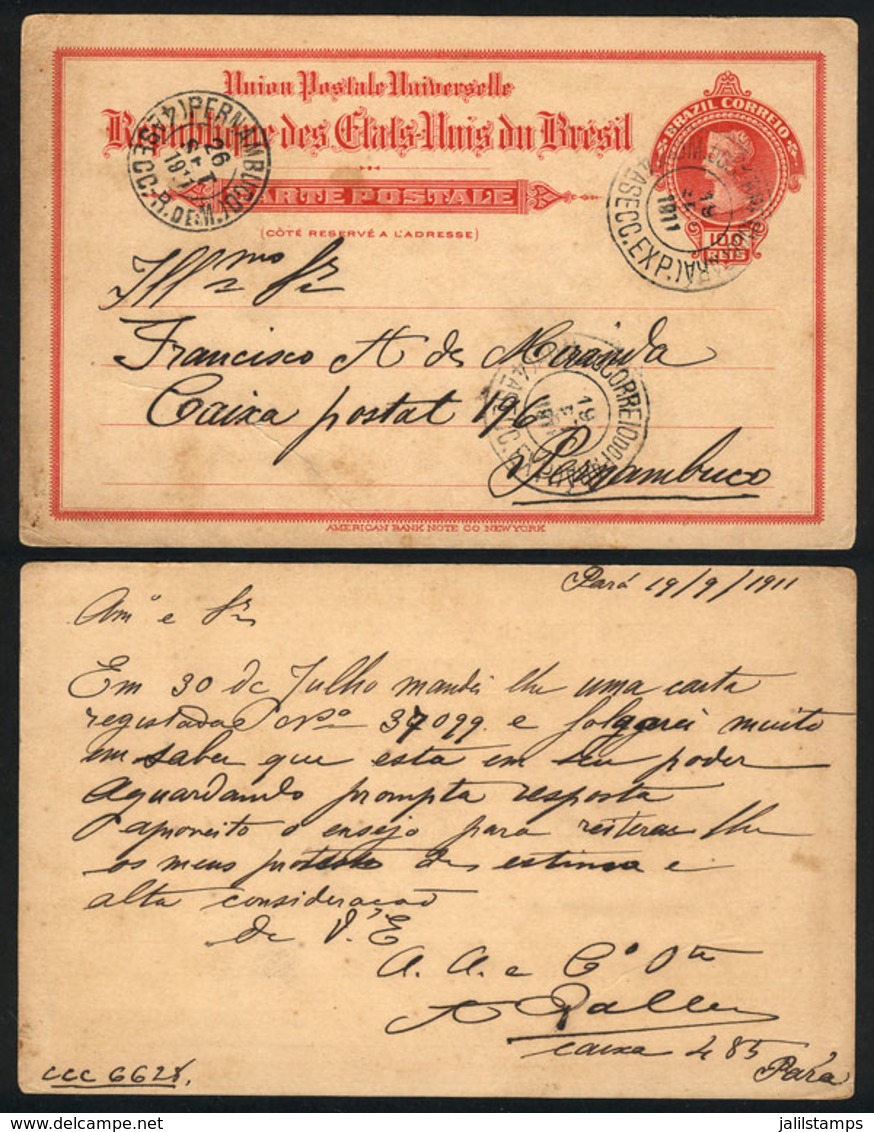 Union Postale Universelle
République des Etats-Unis du Brésil
CARTE POSTALE
(CÔTÉ RESERVÉ A L'ADRESSE)
BRAZIL CORREIO
100
REIS
(4ESECC. R. DE M.) PERNAMBUCO
26
1911
4ASECC.EXP.)
19
1911
CORREIO DO
19
Illmo Sr
Francisco A de Miranda
Caixa postal 196
Pernambuco
AMERICAN BANK NOTE CO NEW YORK
Pará 19/9/1911
Amº e Sr
Em 30 de Julho mandei lhe uma carta
registada Nº 37099 e folgarei muito
em saber que está em seu poder
Aguardando prompta resposta
aproveito o ensejo para reiterar lhe
os meus protestos de estima e
alta consideração
de V. E
A. A. e Cº Otr
caixa 485
Pará
CCC 6628.
jalilstamps